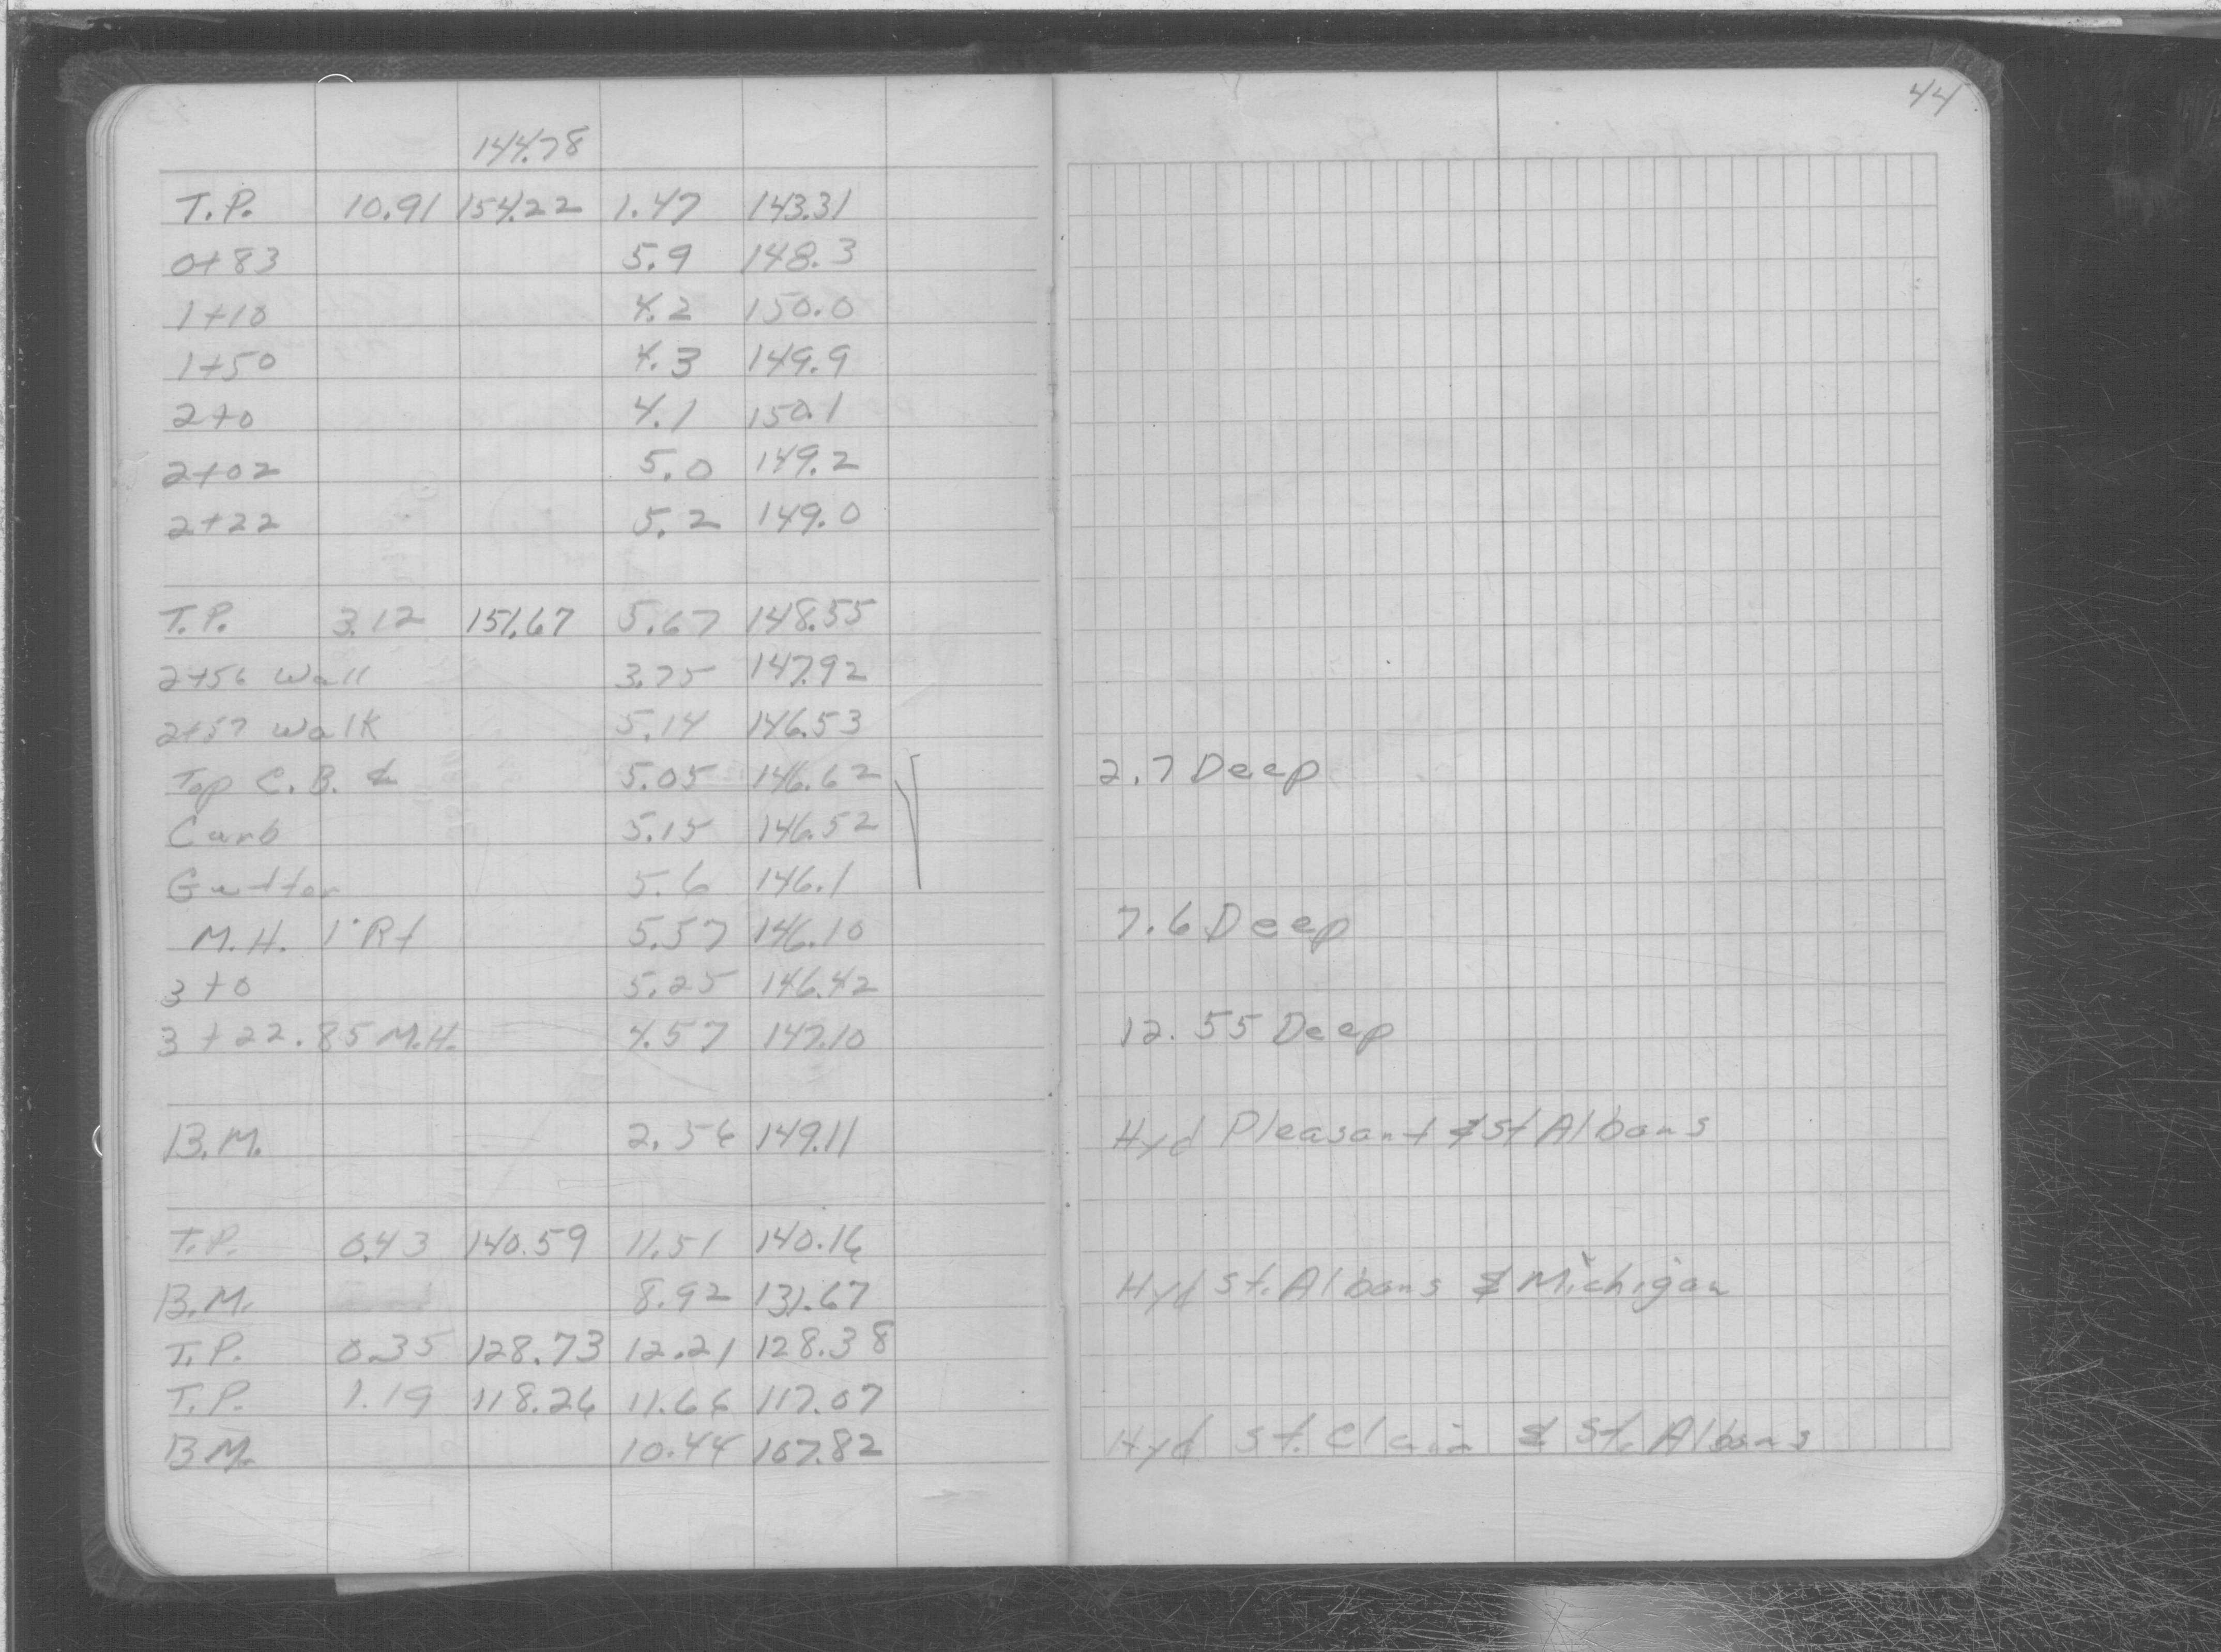 44
144.78
T.P. 10.91 154.22 1.47 143.31
0+83 5.9 148.3
1+10 4.2 150.0
1+50 4.3 149.9
2+0 4.1 150.1
2+02 5.0 149.2
2+22 5.2 149.0
T.P. 3.12 151.67 5.67 148.55
2+56 Wall 3.75 147.92
2+57 Walk 5.14 146.53
Top C.B. & 5.05 146.62 2.7 Deep
Curb 5.15 146.52
Gutter 5.6 146.1
M.H. 1' Rt 5.57 146.10 7.6 Deep
3+0 5.25 146.42
3+22.85 M.H. 4.57 147.10 12.55 Deep
B.M. 2.56 149.11 Hyd Pleasant & St Albans
T.P. 0.43 140.59 11.51 140.16
B.M. 8.92 131.67 Hyd St. Albans & Michigan
T.P. 0.35 128.73 12.21 128.38
T.P. 1.19 118.26 11.66 117.07
B.M. 10.44 107.82 Hyd St. Clair & St. Albans